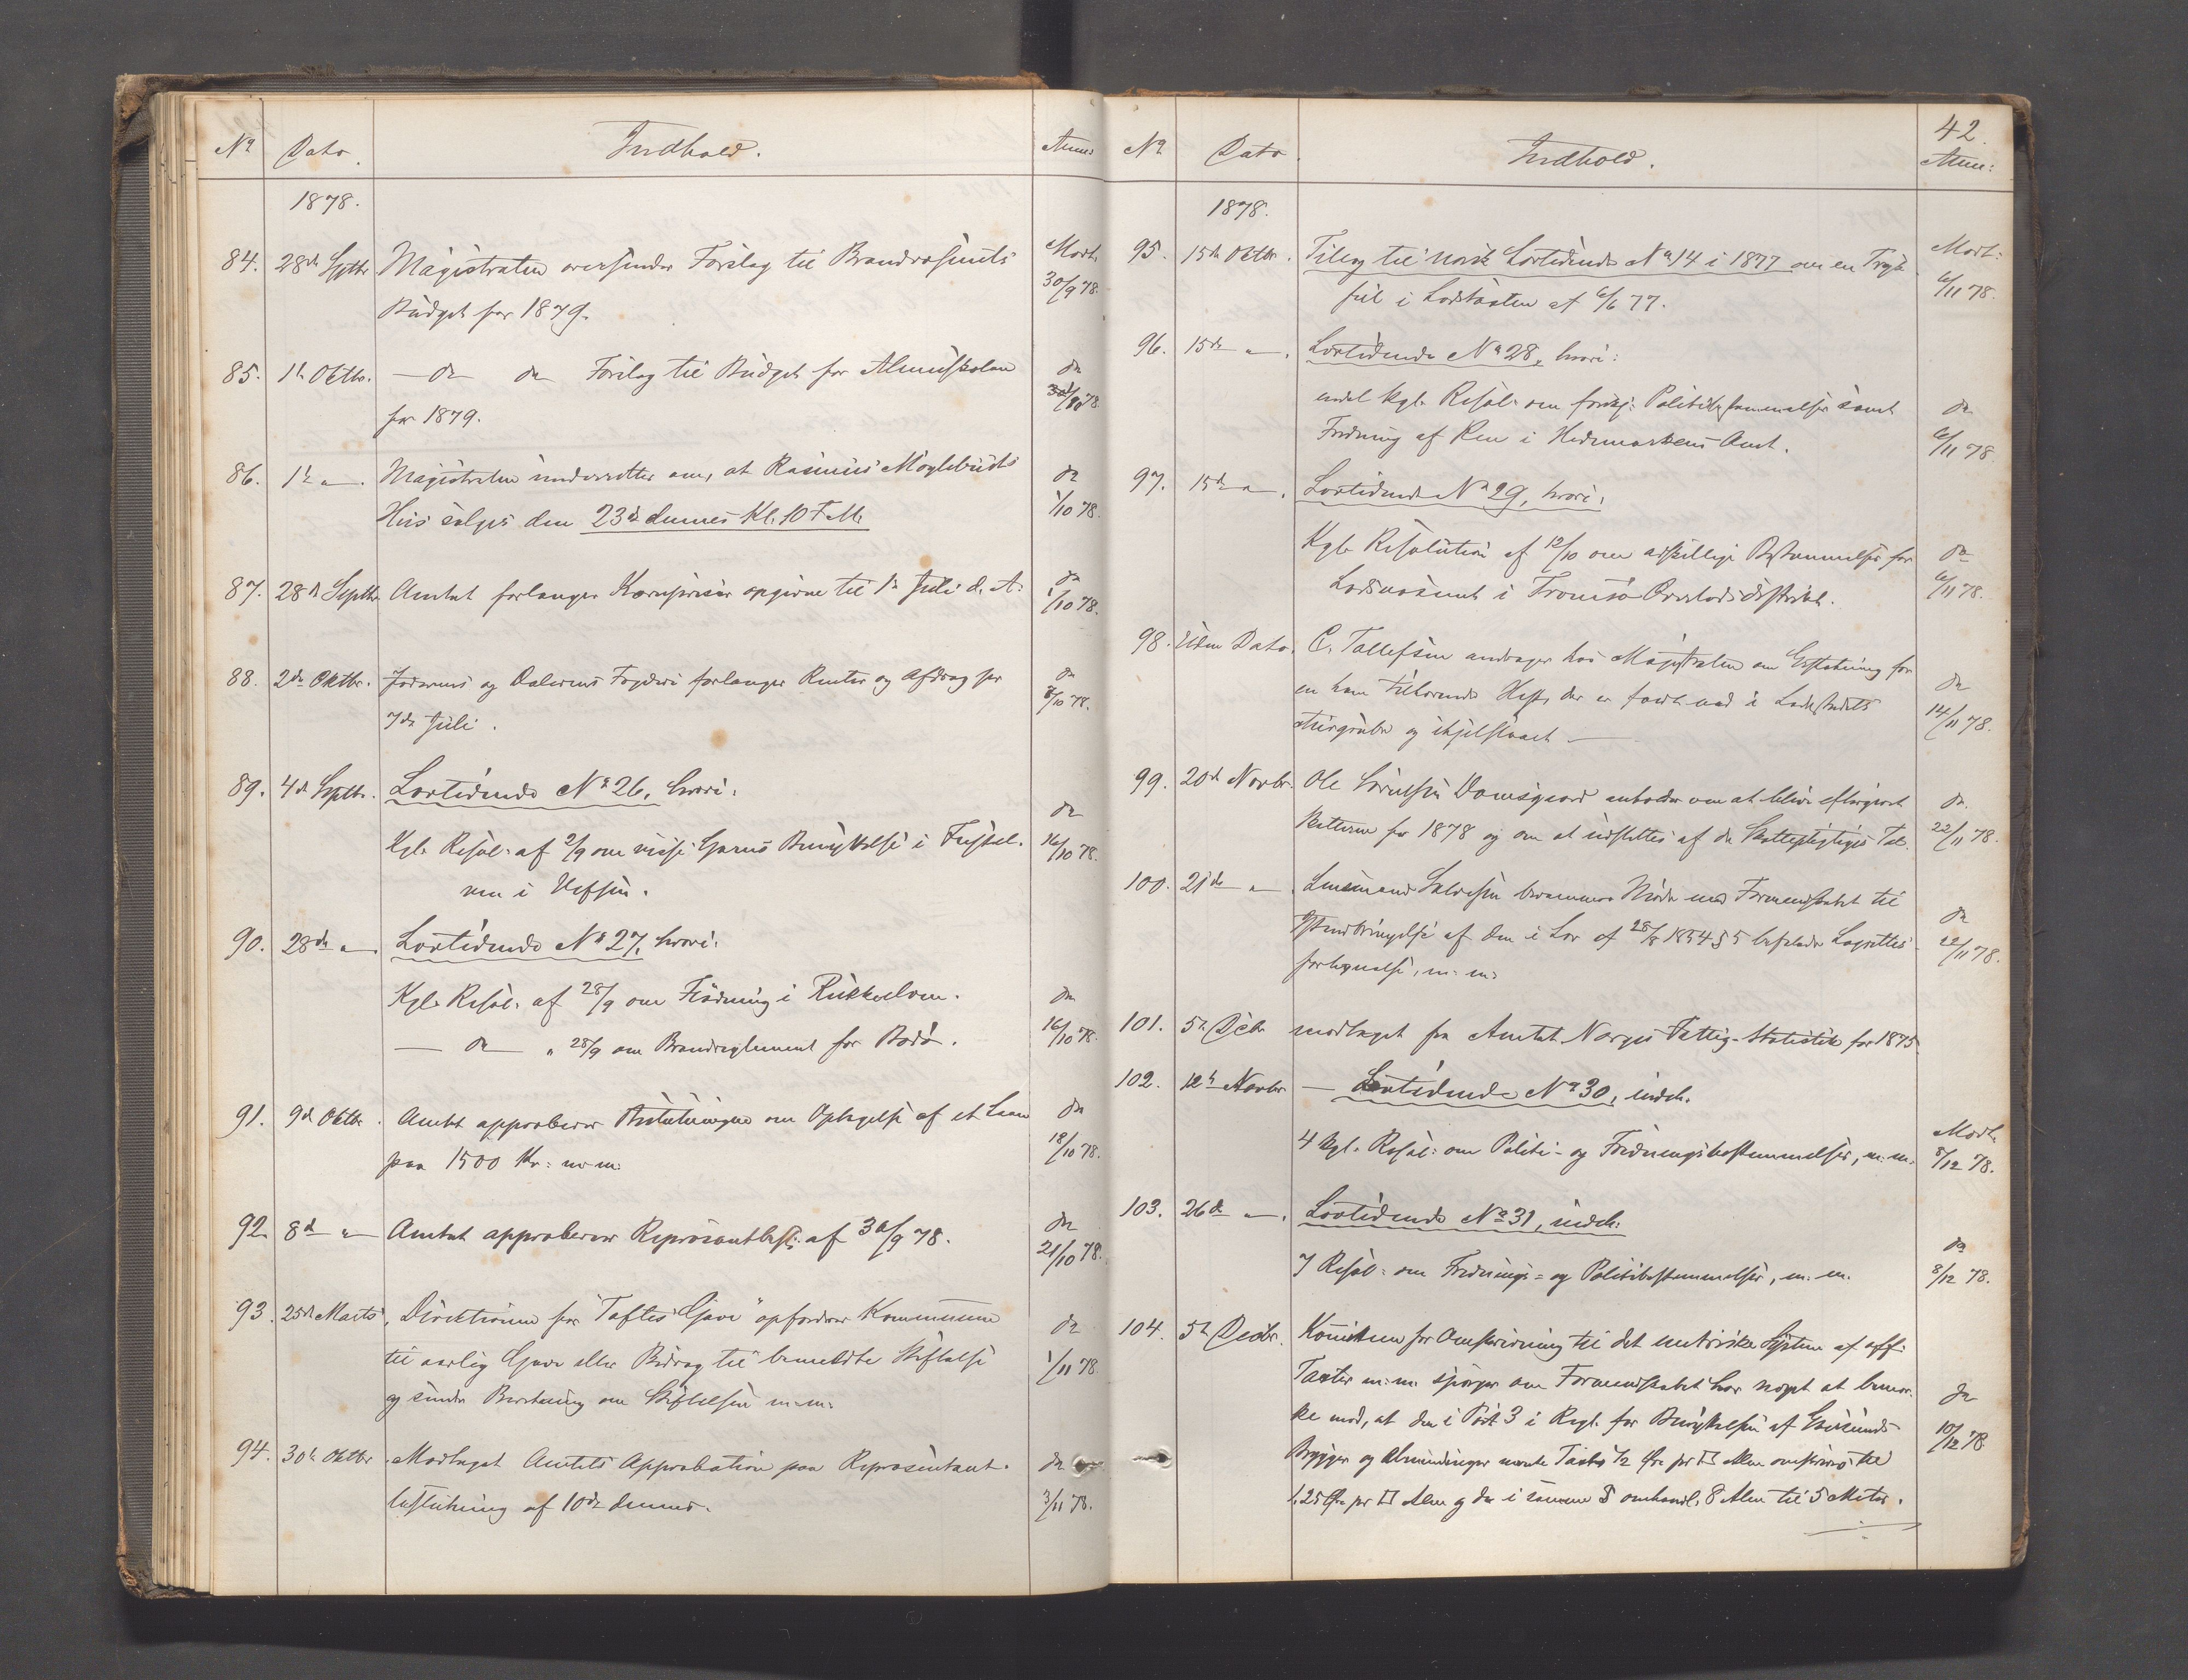 No Dato. Indhold. Anm:
1878.
84. 28de Septbr Magistraten oversender Forslag til Brandvæsenets Modt.
Budget for 1879. 30/9 78.
85. 1te Oktbr. — do do Forslag til Budget for Almuskolen do
for 1879. /10 78
86. 1te " . Magistraten underretter om, at Rasmus Møglebusts do
Hus sælges den 23de dennes Kl. 10 F.M. 1/10 78.
87. 28de Septbr Amtet forlanger Kornpriser opgivne til 1te Juli d. A. do
1/10 78.
88. 2de Oktbr. Jæderens og Dalernes Fogderi forlanger Renter og Afdrag pr do
7de Juli . 8/10 78.
89. 4de Septbr. Lovtidende No 26, hvori: do
Kgl. Resol: af 2/9 om visse Garns Benyttelse i 16/10 78.
ven i Vefsen.
90. 28de " Lovtidende No 27, hvori:
Kgl. Resol: af 28/9 om Flødning i Rukkedøen. do
— do — " 28/9 om Brandreglement for Bodø. 16/10 78.
91. 9de Oktbr. Amtet approberer Beslutningen om Optagelse af et Laan do
paa 1500 Kr: m. m. 18/10 78.
92. 8de " Amtet approberer Repræsantbesl: af 30/9 78. do
21/10 78.
93. 25de Marts, Direktionen for "Toftes Gave" opfordrer Kommunerne do
til aarlig Gave eller Bidrag til bemeldte Stiftelse 1/11 78.
og sender Beretning om Stiftelsen m. m.
94. 30te Oktbr. Modtaget Amtets Approbation paa Repræsentant- do
beslutning af 10de dennes. 3/11 78.
42.
No Dato. Indhold. Anm:
1878.
95. 15de Oktbr. Tillæg til Norsk Lovtidende No 14 i 1877 om en Tryk- Modt:
feil i Lodstaxten af 6/6 77. 6/11 78.
96. 15de " . Lovtidende No 28, hvori:
endel kgl. Resol: om forskj: Politibestemmelser samt do
Fredning af Ren i Hedemarkens Amt. 6/11 78
97. 15de " . Lovtidende No 29, hvori:
Kgl. Resolution af 12/10 om adskillige Bestemmelser for do
Lodsvæsenet i Tromsø Overlodsdistrikt. 6/11 78.
98. Uden Dato. C. Tollefsen andrager hos Magistraten om Erstatning for do
en ham tilhørende Hest, der er ned i Ladestedets 14/11 78.
Aursgrube og ihjelslaaet —
99. 20de Novbr. Ole Sørensen Damsgaard anholder om at blive eftergivet do.
Skatterne for 1878 og om at udslettes af de Skattepligtiges Tal. 22/11 78.
100. 21de " . Lensmand Salvesen berammer Møde med Formandskabet til do
Istandbringelse af den i Lov af 28/8 1854 § 5 befalede Lagrettes- 22/11 78.
fortegnelse, m. m.
101. 5te Debr modtaget fra Amtet Norges Fattig-Statistik for 1875.
102. 12te Novbr — Lovtidende No 30, indeh.
4 kgl. Resol: om Politi- og Fredningsbestemmelser, m. m. Modt.
8/12 78.
103. 26de " . Lovtidende No 31, indeh:
7 Resol: om Frednings- og Politibestemmelser, m. m. do
8/12 78.
104. 5te Decbr. Komiteen for Omskrivning til det metriske System af off:
Taxter m. m. spørger om Formandskabet har noget at bemær- do
ke mod, at den i Post 3 i Regl. for Benyttelsen af Egersunds 10/12 78
Brygger og Almindinger nævnte Taxt 1/2 Øre pr □ Alen omskrives til
1,25 Øre pr □ Alen og de i samme § omhandl. 8 Alen til 5 Meter.